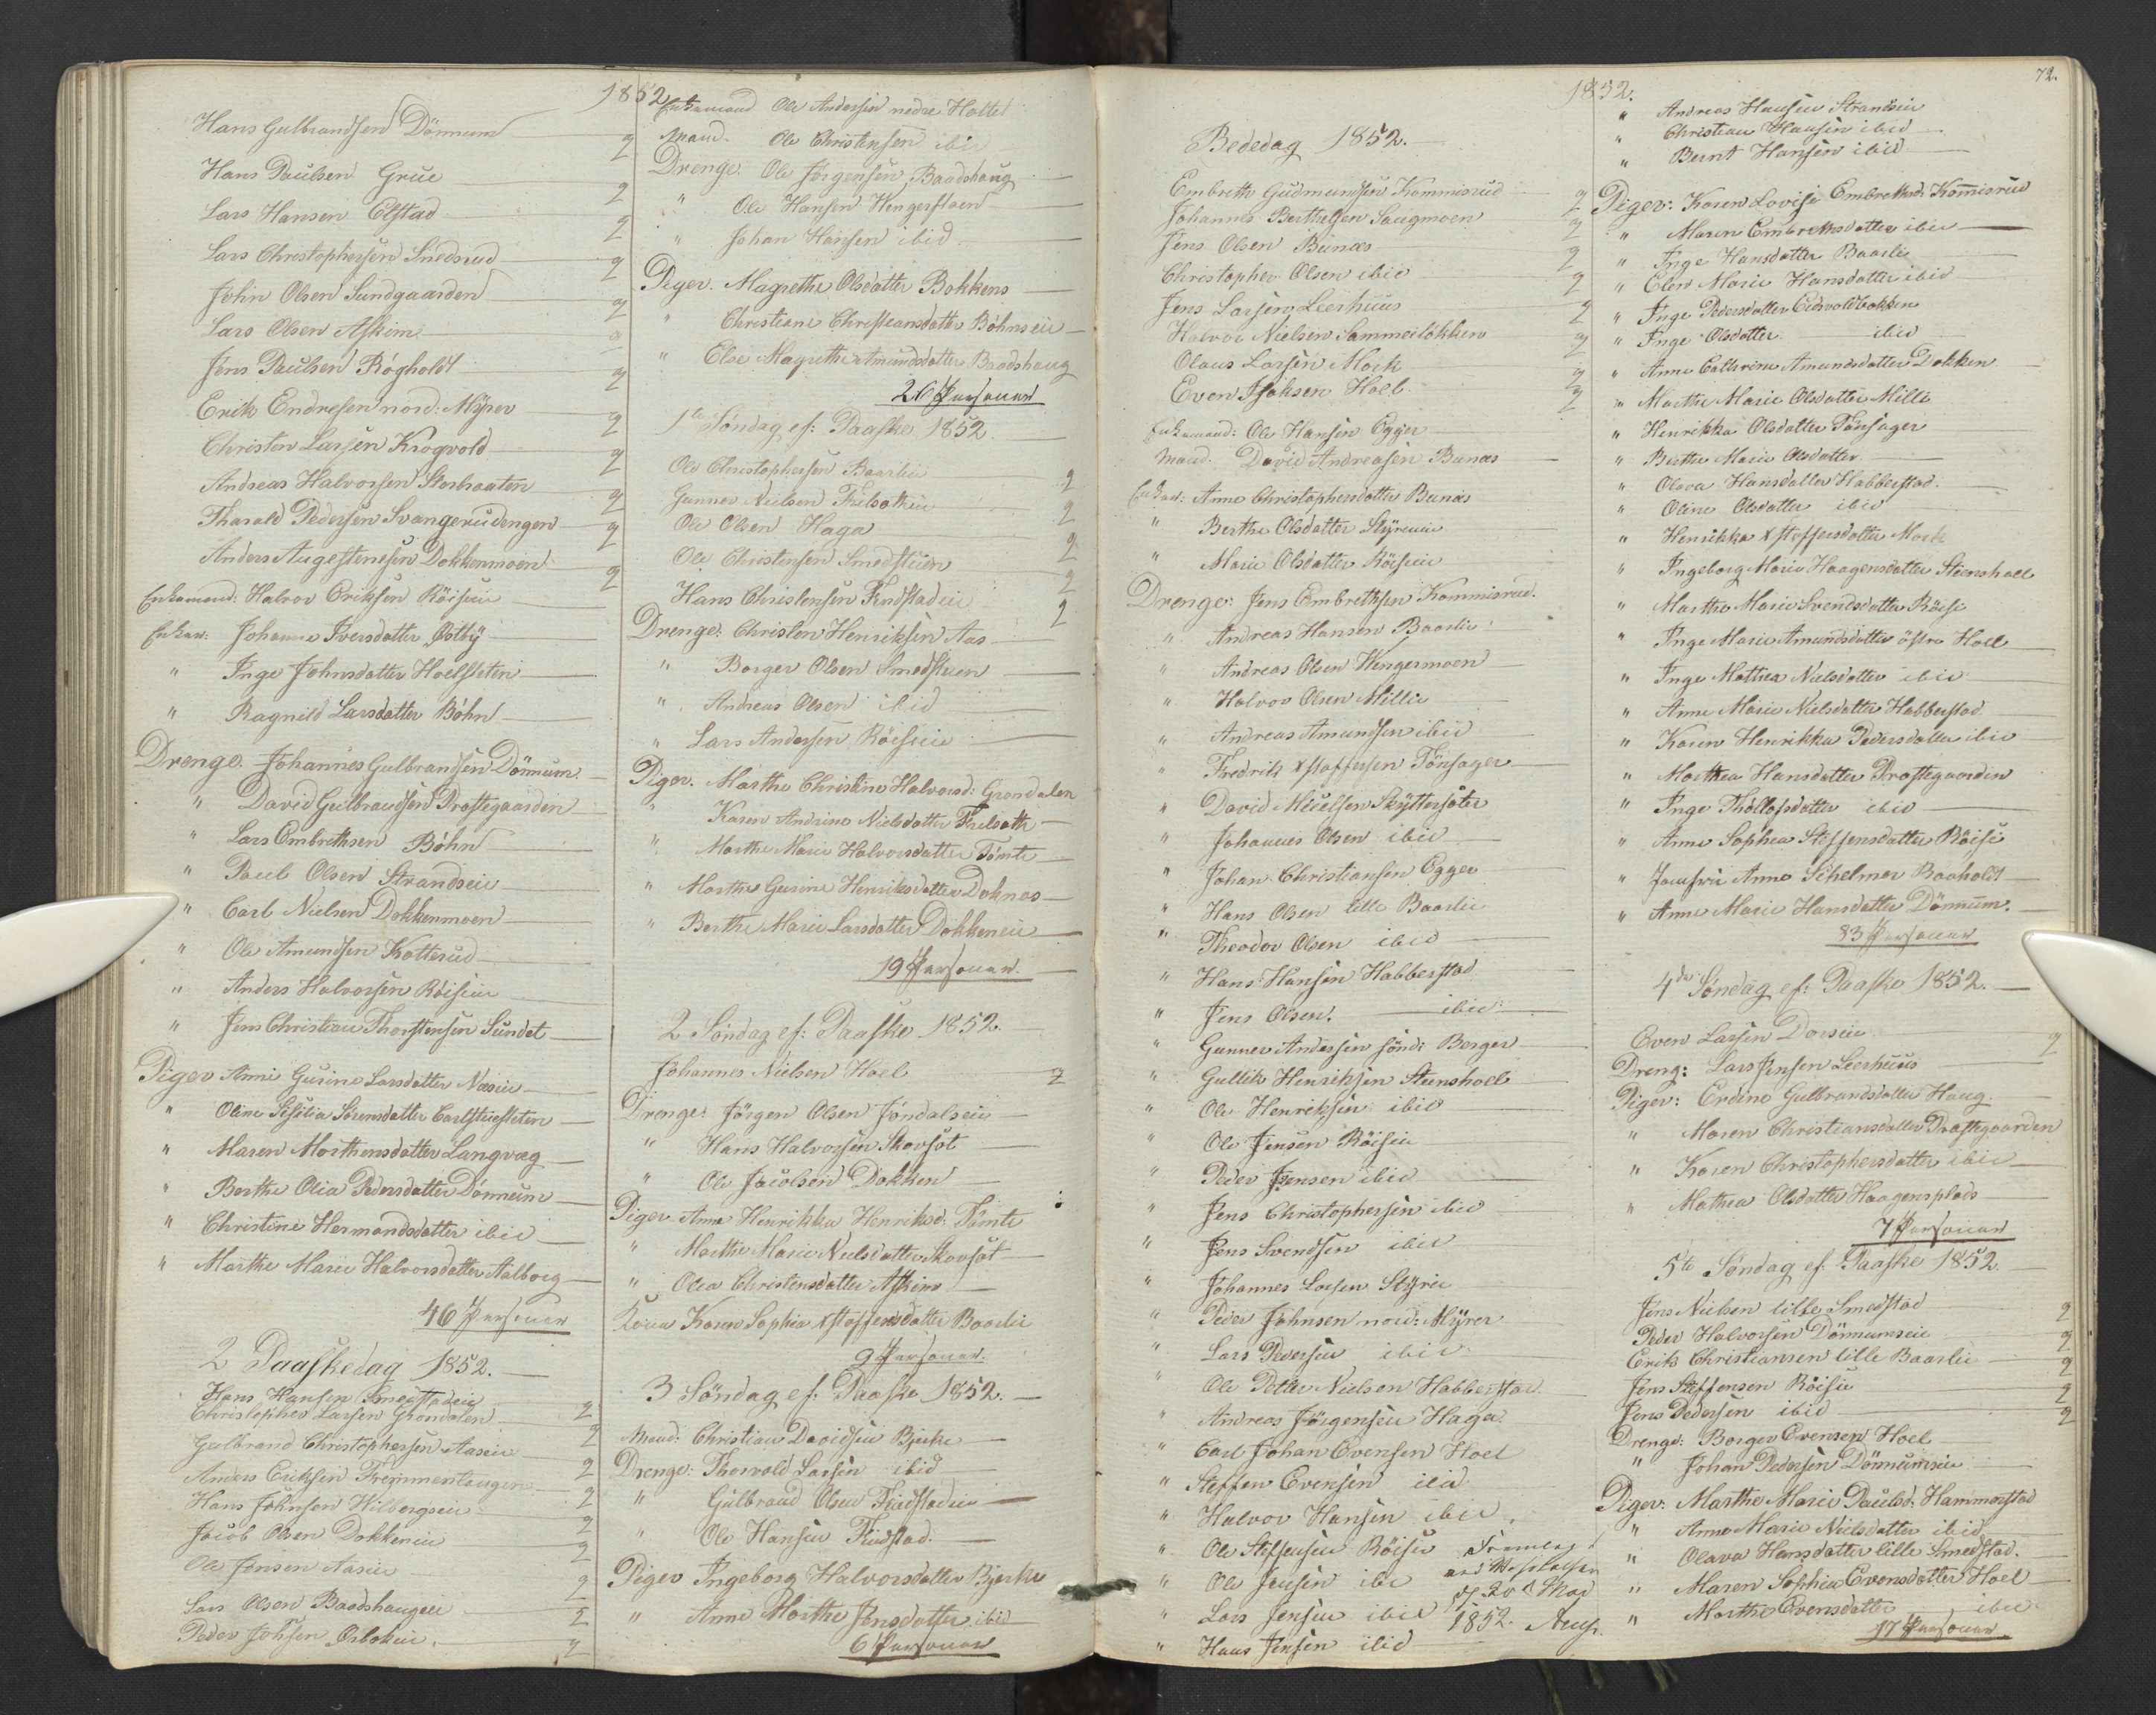 1852
Hans Gulbrandsen Dönnum 2
Hans Paulsen Grue 2
Lars Hansen Elstad 2
Lars Christophersen Snedsrud 2
John Olsen Sundgaarden 2
Lars Olsen Askim 2
Jens Paulsen Rögholdt 2
Erik Endresen nord: Myrer 2
Christen Larsen Krogvold 2
Andreas Halvorsen Storbraaten 2
Tharald Pedersen Svangerudengen 2
Anders Augestensen Dokkenmoen 2
Enkemand: Halvor Eriksen Röiseie
Enker: Johanne Iversdatter Østby
" Inge Johnsdatter Hoelsleten
" Ragnild Larsdatter Böhn
Drenge. Johannes Gulbrandsen Dönnum
" David Gulbrandsen Prostegaarden
" Lars Embrethsen Böhn
" Paul Olsen Strandseie
" Carl Nielsen Dokkenmoen
" Ole Amundsen Kotterud
" Anders Halvorsen Röiseie
" Jens Christian Thorstensen Sundet
Piger Anne Gusine Larsdatter Næseie
" Oline Sisilia Sörensdatter Carlstuesleten
" Maren Morthensdatter Langvæg
" Berthe Olia Pedersdatter Dönnum
" Christine Hermandsdatter ibid
" Marthe Marie Halvorsdatter Aalborg
46 Personer
2 Paaskedag 1852.
Hans Hansen Smedstadeie 2
Christopher Larsen Grondalen 2
Gulbrand Christophersen Aaseie 2
Anders Eriksen 2
Hans Johnsen Hilbergseie 2
Jacob Olsen Dokkeneie 2
Ole Jensen Aaseie 2
Lars Olsen Baadshaugen 2
Peder Johsen 2
Enkemand Ole Andersen nedre Holtet
Mand. Ole Christensen ibid
Drenge. Ole Jörgensen Baadshaug
" Ole Hansen Hengersloen
" Johan Hansen ibid
Piger. Magrethe Olsdatter Bakkens
" Christiane Christiansdatter Böhnseie
" Else Magrethe Amundsdatter Baadshaug
26 Personer
1te Söndag ef: Paaske 1852.
Ole Christophersen Baarlie 2
Gunner Nielsen Frilsetheie 2
Ole Olsen Haga 2
Ole Christensen Smedstuen 2
Hans Christensen Findstadeie 2
Drenge: Christen Henriksen Aas
" Borger Olsen Smedstuen
" Andreas Olsen ibid
" Lars Andersen Röiseie
Piger. Marthe Christine Halvorsd: Grondalen
" Karen Andrine Nielsdatter Frilseth
" Marthe Marie Halvorsdatter Tömte
" Marthe Gusine Henriksdatter Doknes
" Berthe Marie Larsdatter Dokkeneie
19 Personer
2 Söndag ef: Paaske 1852
Johannes Nielsen Hoel 2
Drenge: Jörgen Olsen Jöndalseie
" Hans Halvorsen Skovsöt
" Ole Jacobsen Dokken
Piger Anne Henrikka Henriksd: Tömte
" Marthe Marie Nielsdatter Skovsöt
" Olea Christensdatter Askim
Kona Karen Sophia Xstaffersdatter Baarlie
9 Personer.
3 Söndag ef: Paaske 1852.
Mand: Christian Davidsen Bjerke
Drenge: Thorvald Larsen ibid
" Gulbrand Olsen Findstadeie
" Ole Hansen Findstad.
Piger Ingeborg Halvorsdatter Bjerke
" Anne Marthe Jensdatter ibid
6 Personer
1852. 72.
Bededag 1852.
Embreth Gudmundsen Kommisrud 2
Johannes Berthelsen Saugmoen 2
Jens Olsen Bunæs 2
Christopher Olsen ibid 2
Jens Larsen Leerhuus 2
Halvor Nielsen Sammeilökken 2
Olaus Larsen Mork 2
Even Isaksen Hoel 2
Enkemand: Ole Hansen Egger
Mand. David Andreasen Bunæs
Enker: Anne Christophersdatter Bunæs
" Berthe Olsdatter Styrieie
" Marie Olsdatter Röiseie
Drenge: Jens Embrethsen Kommisrud.
" Andreas Hansen Baarlie
" Andreas Olsen Hengermoen
" Halvor Olsen Millie
" Andreas Amundsen ibid
" Fredrik Xstaffersen Tönsager
" David Micelsen Skyttersöter
" Johannes Olsen ibid
" Johan Christiansen Egger
" Hans Olsen lille Baarlie
" Theodor Olsen ibid
" Hans Hansen Habberstad
" Jens Olsen. ibid
" Gunner Andersen söndr Berger
" Gullik Henriksen Steenshoel
" Ole Henriksen ibid
" Ole Jensen Röiseie
" Peder Jensen ibid
" Jens Christophersen ibid
" Jens Svendsen ibid
" Johannes Larsen Styrie
" Peder Johnsen nord: Myrer
" Lars Pedersen ibid
" Ole Petter Nielsen Habberstad
" Andreas Jörgensen Haga
" Carl Johan Evensen Hoel
" Steffen Evensen ibid
" Halvor Hansen ibid
" Ole Steffensen Röiseie
" Ole Jensen ibi
" Lars Jensen ibid
" Hans Jensen ibid
Fremlagt
ved
d. 20d Mai
1852.
" Andreas Hansen Strandseie
" Christian Hansen ibid
" Bernt Hansen ibid
Piger: Karen Lovise Embrethsd: Kommisrud
" Maren Embrethsdatter ibid
" Inge Hansdatter Baarlie
" Elen Marie Hansdatter ibid
" Inge Pedersdatter Eidsvoldbakken
" Inge Olsdatter ibid
" Anne Cathrine Amundsdatter Dokken
" Marthe Marie Olsdatter Millie
" Henrikka Olsdatter Tönsager
" Berthe Marie Olsdatter
" Olava Hansdatter Habberstad.
" Oline Olsdatter ibid
" Henrikka Xstoffersdatter Mork
" Ingeborg Marie Haagensdatter Steenshoel
" Marthe Marie Svendsdatter Röise
" Inge Marie Amundsdatter östre Hoel
" Inge Mathea Nielsdatter ibid
" Anne Marie Nielsdatter Habberstad
" Karen Henrikka Pedersdatter ibid
" Marthea Hansdatter Prostegaarden
" Inge Thollofsdatter ibid
" Anne Sophea Steffensdatter Röise
" Jomfrue Anne Schelmer Raaholdt
" Anne Marie Hansdatter Dönnum.
83 Personer
4de Söndag ef: Paaske 1852.
Even Larsen Dorseie 2
Dreng: Lars Jensen Leerhuus
Piger: Erdine Gulbrandsdatter Haug.
" Maren Christiansdatter Prostegaarden
" Karen Christophersdatter ibid
" Mathea Olsdatter Haagensplads
7 Personer
5te Söndag ef. Paaske 1852.
Jens Nielsen lille Smedstad 2
Peder Halvorsen Dönnumseie 2
Erik Christiansen lille Baarlie 2
Jens Steffensen Röiseie 2
Jens Pedersen ibid 2
Drenge: Borger Evensen Hoel
" Johan Pedersen Dönnumseie
Piger: Marthe Marie Paulsd: Hammerstad
" Anne Marie Nielsdatter ibid
" Olava Hansdatter lille Smedstad.
" Maren Sophia Evensdatter Hoel
" Marthe Evensdatter ibid
17 Personer